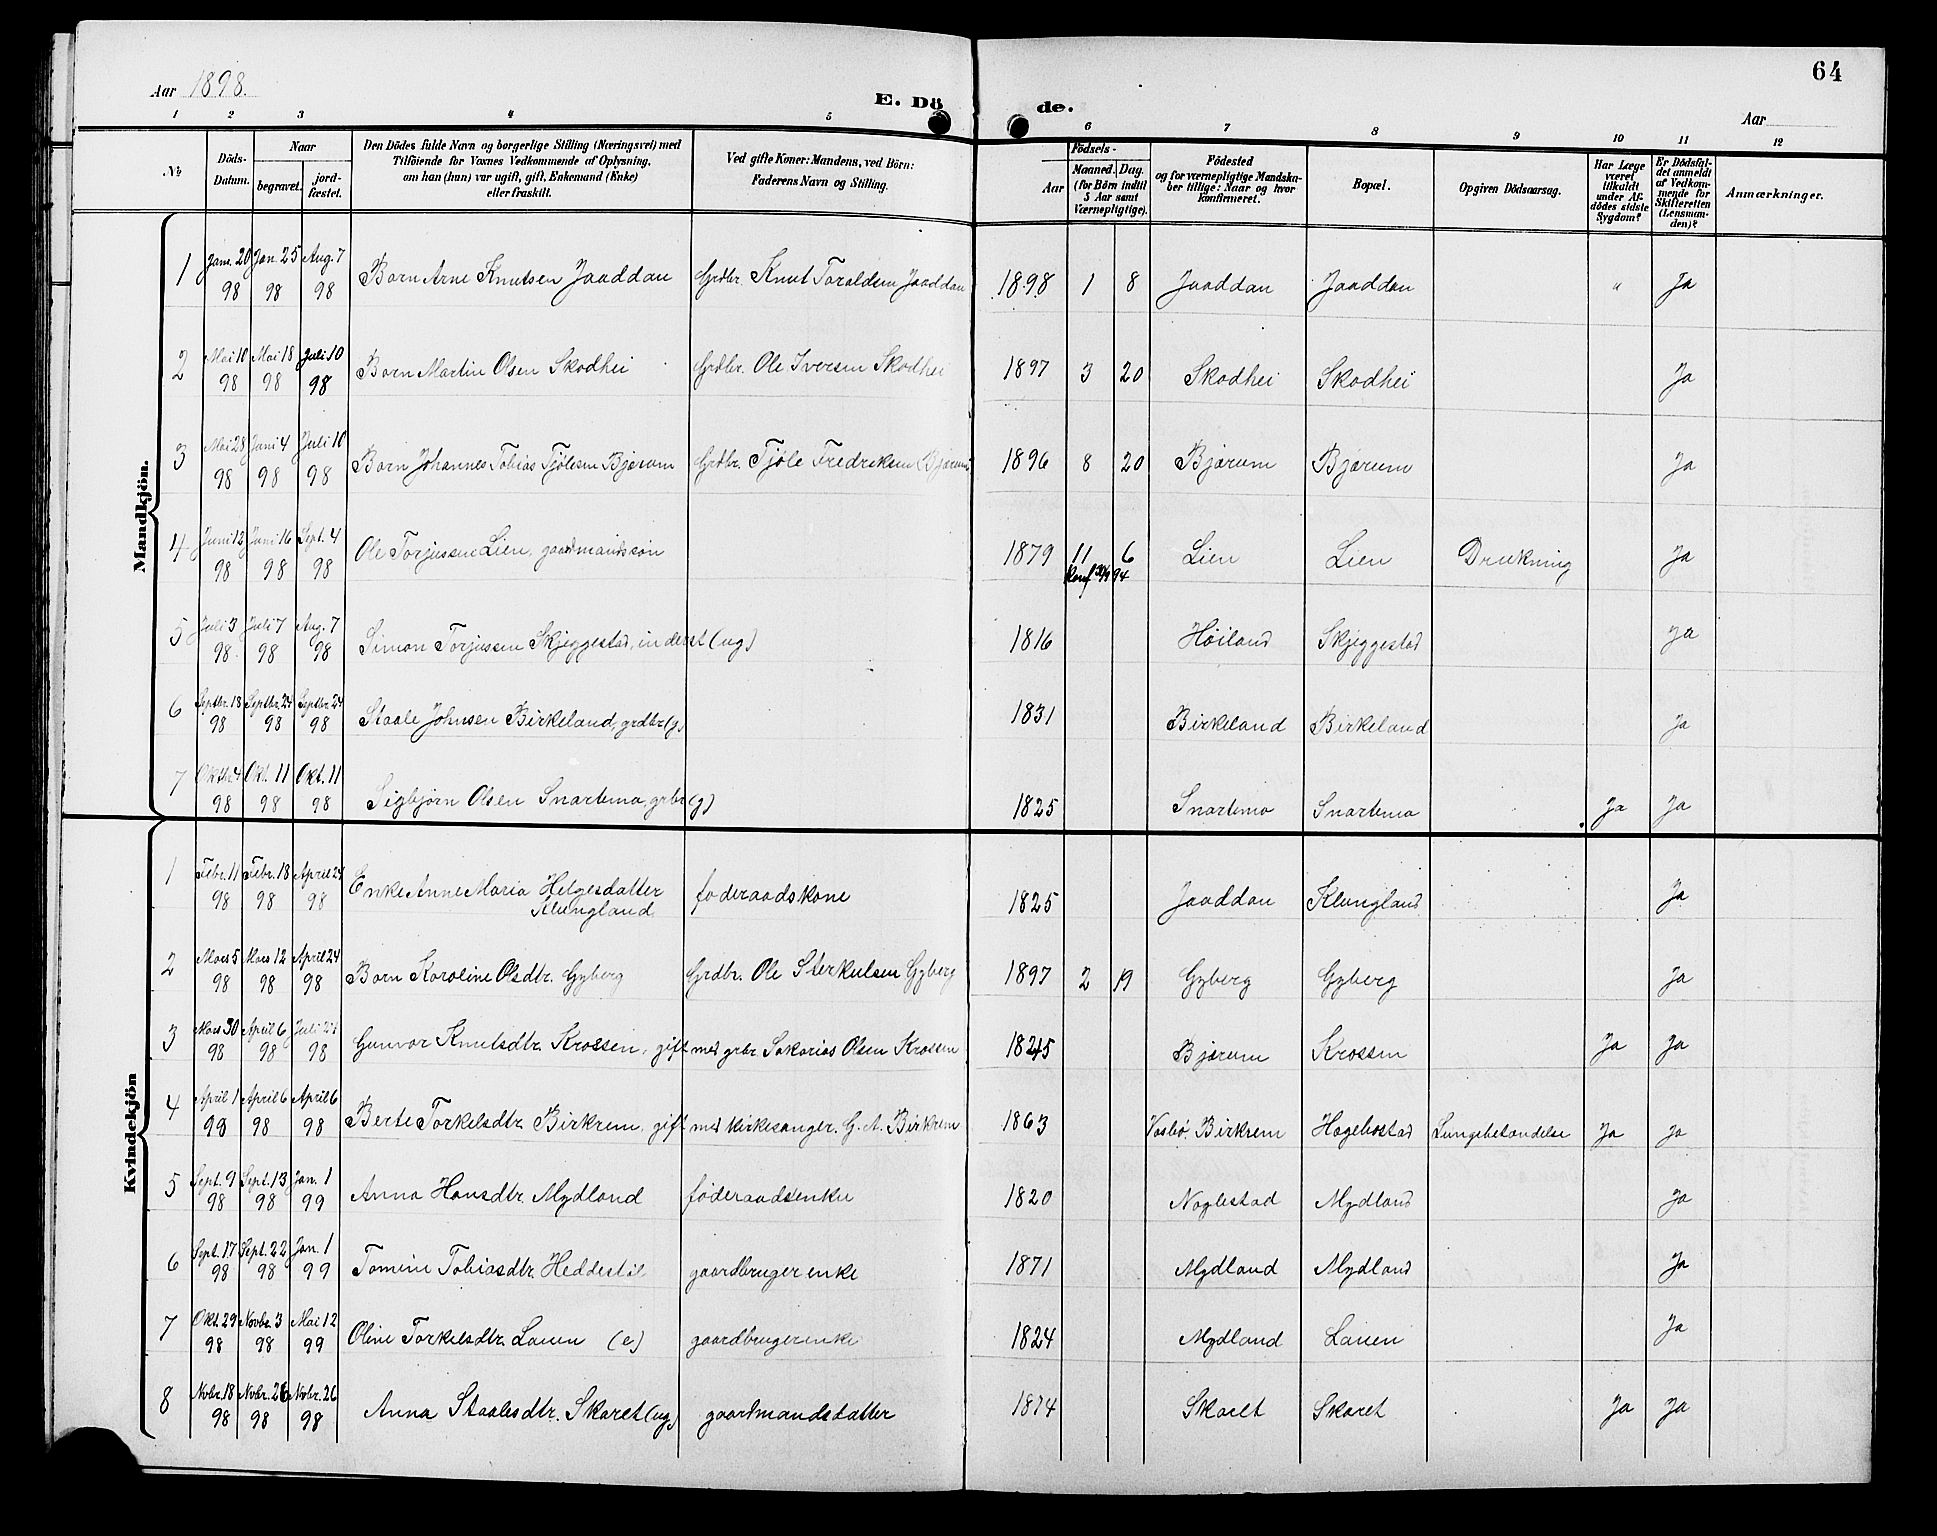 64
Aar 1898.
E. Dö de.
Aar
1 2 3 4 5 6 7 8 9 10 11 12
No
Döds-Datum.
Naar begravet. jordfæstet.
Den Dödes fulde Navn og borgerlige Stilling (Næringsvei) med
Tilföiende for Voxnes Vedkommende af Oplysning,
om han (hun) var ugift, gift, Enkemand (Enke)
eller fraskilt.
Ved gifte Koner: Mandens, ved Börn:
Faderens Navn og Stilling.
Födsels-
Aar Maaned. Dag.
(for Börn indtil
5 Aar samt
Værnepligtige).
Födested
og for værnepligtige Mandskaber tillige: Naar og hvor
konfirmeret.
Bopæl.
Opgiven Dödsaarsag.
Har Læge
været
tilkaldt
under Afdödes sidste
Sygdom?
Er Dödsfaldet anmeldt
af Vedkommende for
Skifteretten
(Lensmanden)?
Anmærkninger.
Mandkjön.
1 Jans. 20 98 Jan. 25 98 Aug. 7 98 Barn Arne Knutsen Jaaddan Grdbr. Knut Toraldsen Jaaddan 1898 1 8 Jaaddan Jaaddan " Ja
2 Mai 10 98 Mai 18 98 Juli 10 98 Barn Martin Olsen Skodhei Grdbr. Ole Iversen Skodhei 1897 3 20 Skodhei Skodhei Ja
3 Mai 28 98 Juni 4 98 Juli 10 98 Barn Johannes Tobias Tjölesen Bjærum Grdbr. Tjöle Fredriksen Bjærum 1896 8 20 Bjærum Bjærum Ja
4 Juni 12 98 Juni 16 98 Sept. 4 98 Ole Torjussen Lien, gaardmandssön 1879 11 6 Konf 30/9 94 Lien Lien Drukning Ja
5 Juli 3 98 Juli 7 98 Aug. 7 98 Simon Torjussen Skjeggestad, inderst (ug) 1816 Höiland Skjeggestad Ja
6 Septbr. 18 98 Septbr. 24 98 Septbr. 24 98 Staale Johnsen Birkeland, grdbr (g) 1831 Birkeland Birkeland Ja
7 Oktbr. 4 98 Okt. 11 98 Okt. 11 98 Sigbjörn Olsen Snartemo, grbr (g) 1825 Snartemo Snartemo Ja Ja
Kvindekjön
1 Febr. 11 98 Febr. 18 98 April 24 98 Enke Anne Maria Helgesdatter Klungland föderaadskone 1825 Jaaddan Klungland Ja
2 Mars 5 98 Mars 12 98 April 24 98 Barn Karoline Olsdtr. Gyberg Grdbr. Ole Sterkulsen Gyberg 1897 2 19 Gyberg Gyberg Ja
3 Mars 30 98 April 6 98 Juli 98 Gunvor Knutsdtr. Krossen, gift med grbr Sakarias Olsen Krossen 1845 Bjærum Krossen Ja Ja
4 April 1 98 April 6 98 April 6 98 Berte Torkelsdtr Birkrem, gift med kirkesanger. G. A. Birkrem 1863 Vasbö, Birkrem Hægebostad Lungebetændelse Ja Ja
5 Sept. 9 98 Sept. 13 98 Jan. 1 99 Anna Hansdtr Mydland föderaadsenke 1820 Naglestad Mydland Ja
6 Sept. 17 98 Sept. 22 98 Jan. 1 99 Tomine Tobiasdtr Heddestöl gaardbrugerenke 1871 Mydland Mydland Ja
7 Okt. 29 98 Novbr. 3 98 Mai 12 99 Oline Torkelsdtr. Lauen (e) gaardbrugerenke 1824 Mydland Lauen Ja
8 Novbr. 18 98 Novbr. 26 98 Novbr. 26 98 Anna Staalesdtr. Skaret (ug) gaardmandsdatter 1874 Skaret Skaret Ja Ja